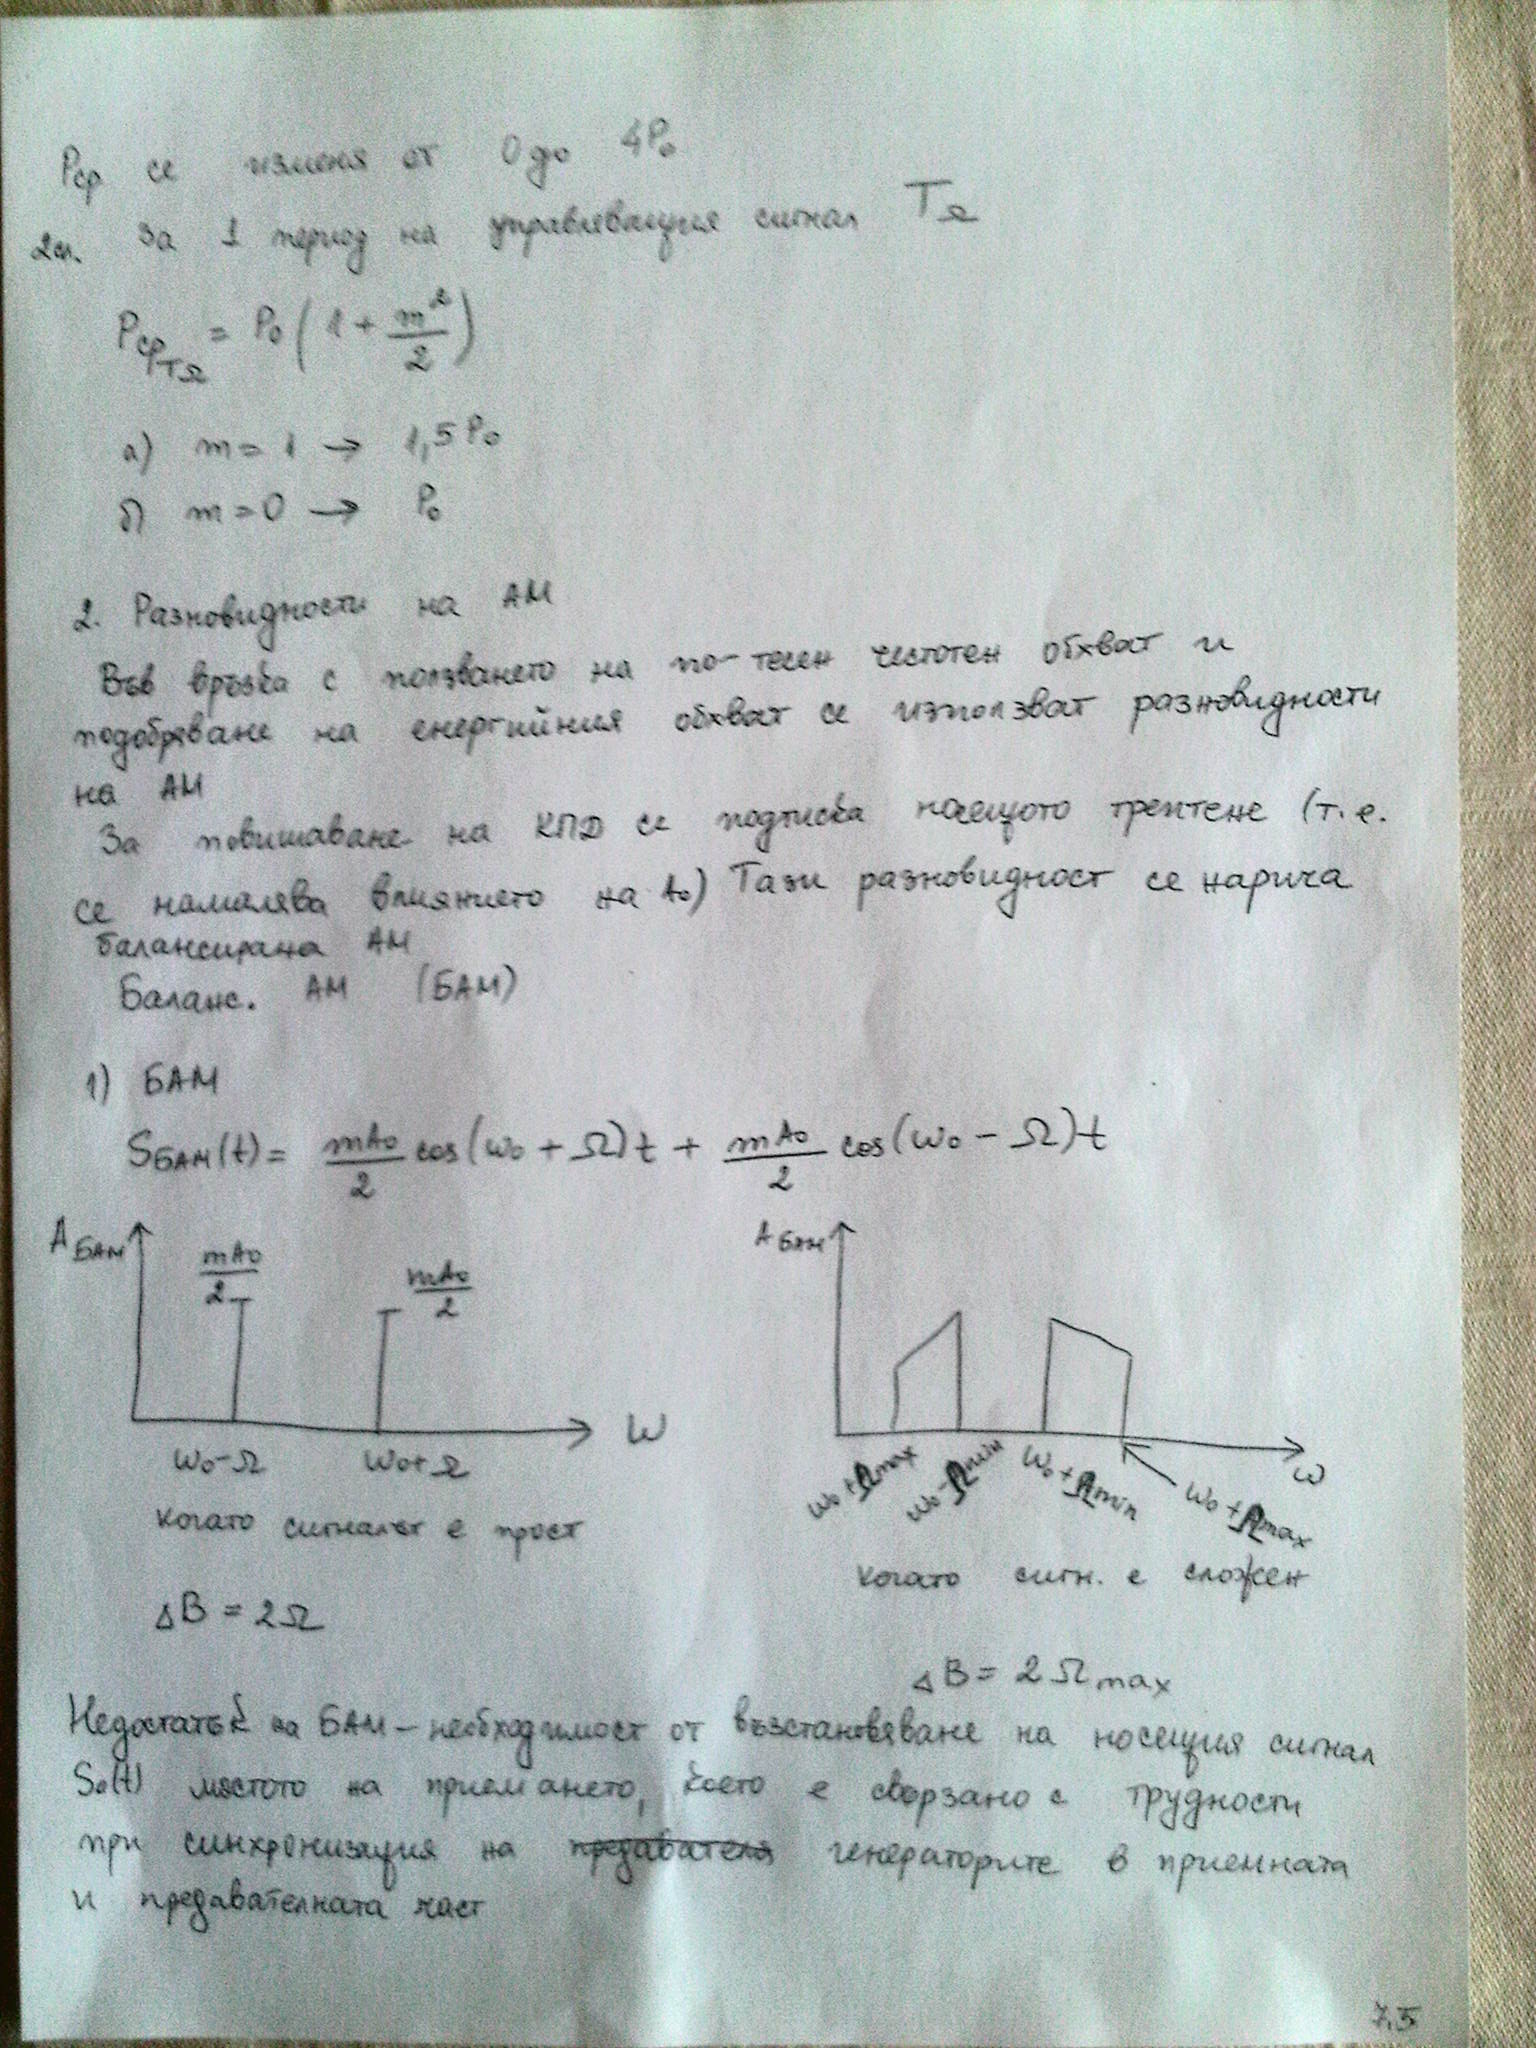 Pср се изменя от 0 до 4P₀
2сл. За 1 период на управляващия сигнал T_Ω
Pср_TΩ = P₀ (1 + m²/2)
а) m = 1 → 1,5 P₀
б) m = 0 → P₀
2. Разновидности на АМ
Във връзка с ползването на по-тесен честотен обхват и
подобряване на енергийния обхват се използват разновидности
на АМ
За повишаване на КПД се подтиска носещото трептене (т.е.
се намалява влиянието на A₀) Тази разновидност се нарича
балансирана АМ
Баланс. АМ (БАМ)
1) БАМ
S_БАМ(t) = mA₀/2 cos(ω₀ + Ω)t + mA₀/2 cos(ω₀ - Ω)t
A_БАМ mA₀/2 mA₀/2 A_БАМ
ω₀-Ω ω₀+Ω ω
ω₀+Ωmax ω₀-Ωmin ω₀+Ωmin ω₀+Ωmax ω
когато сигналът е прост
когато сигн. е сложен
ΔB = 2Ω
ΔB = 2Ωmax
Недостатък на БАМ – необходимост от възстановяване на носещия сигнал
S₀(t) мястото на приемането, което е свързано с трудности
при синхронизация на предавателя генераторите в приемната
и предавателната част
7.5